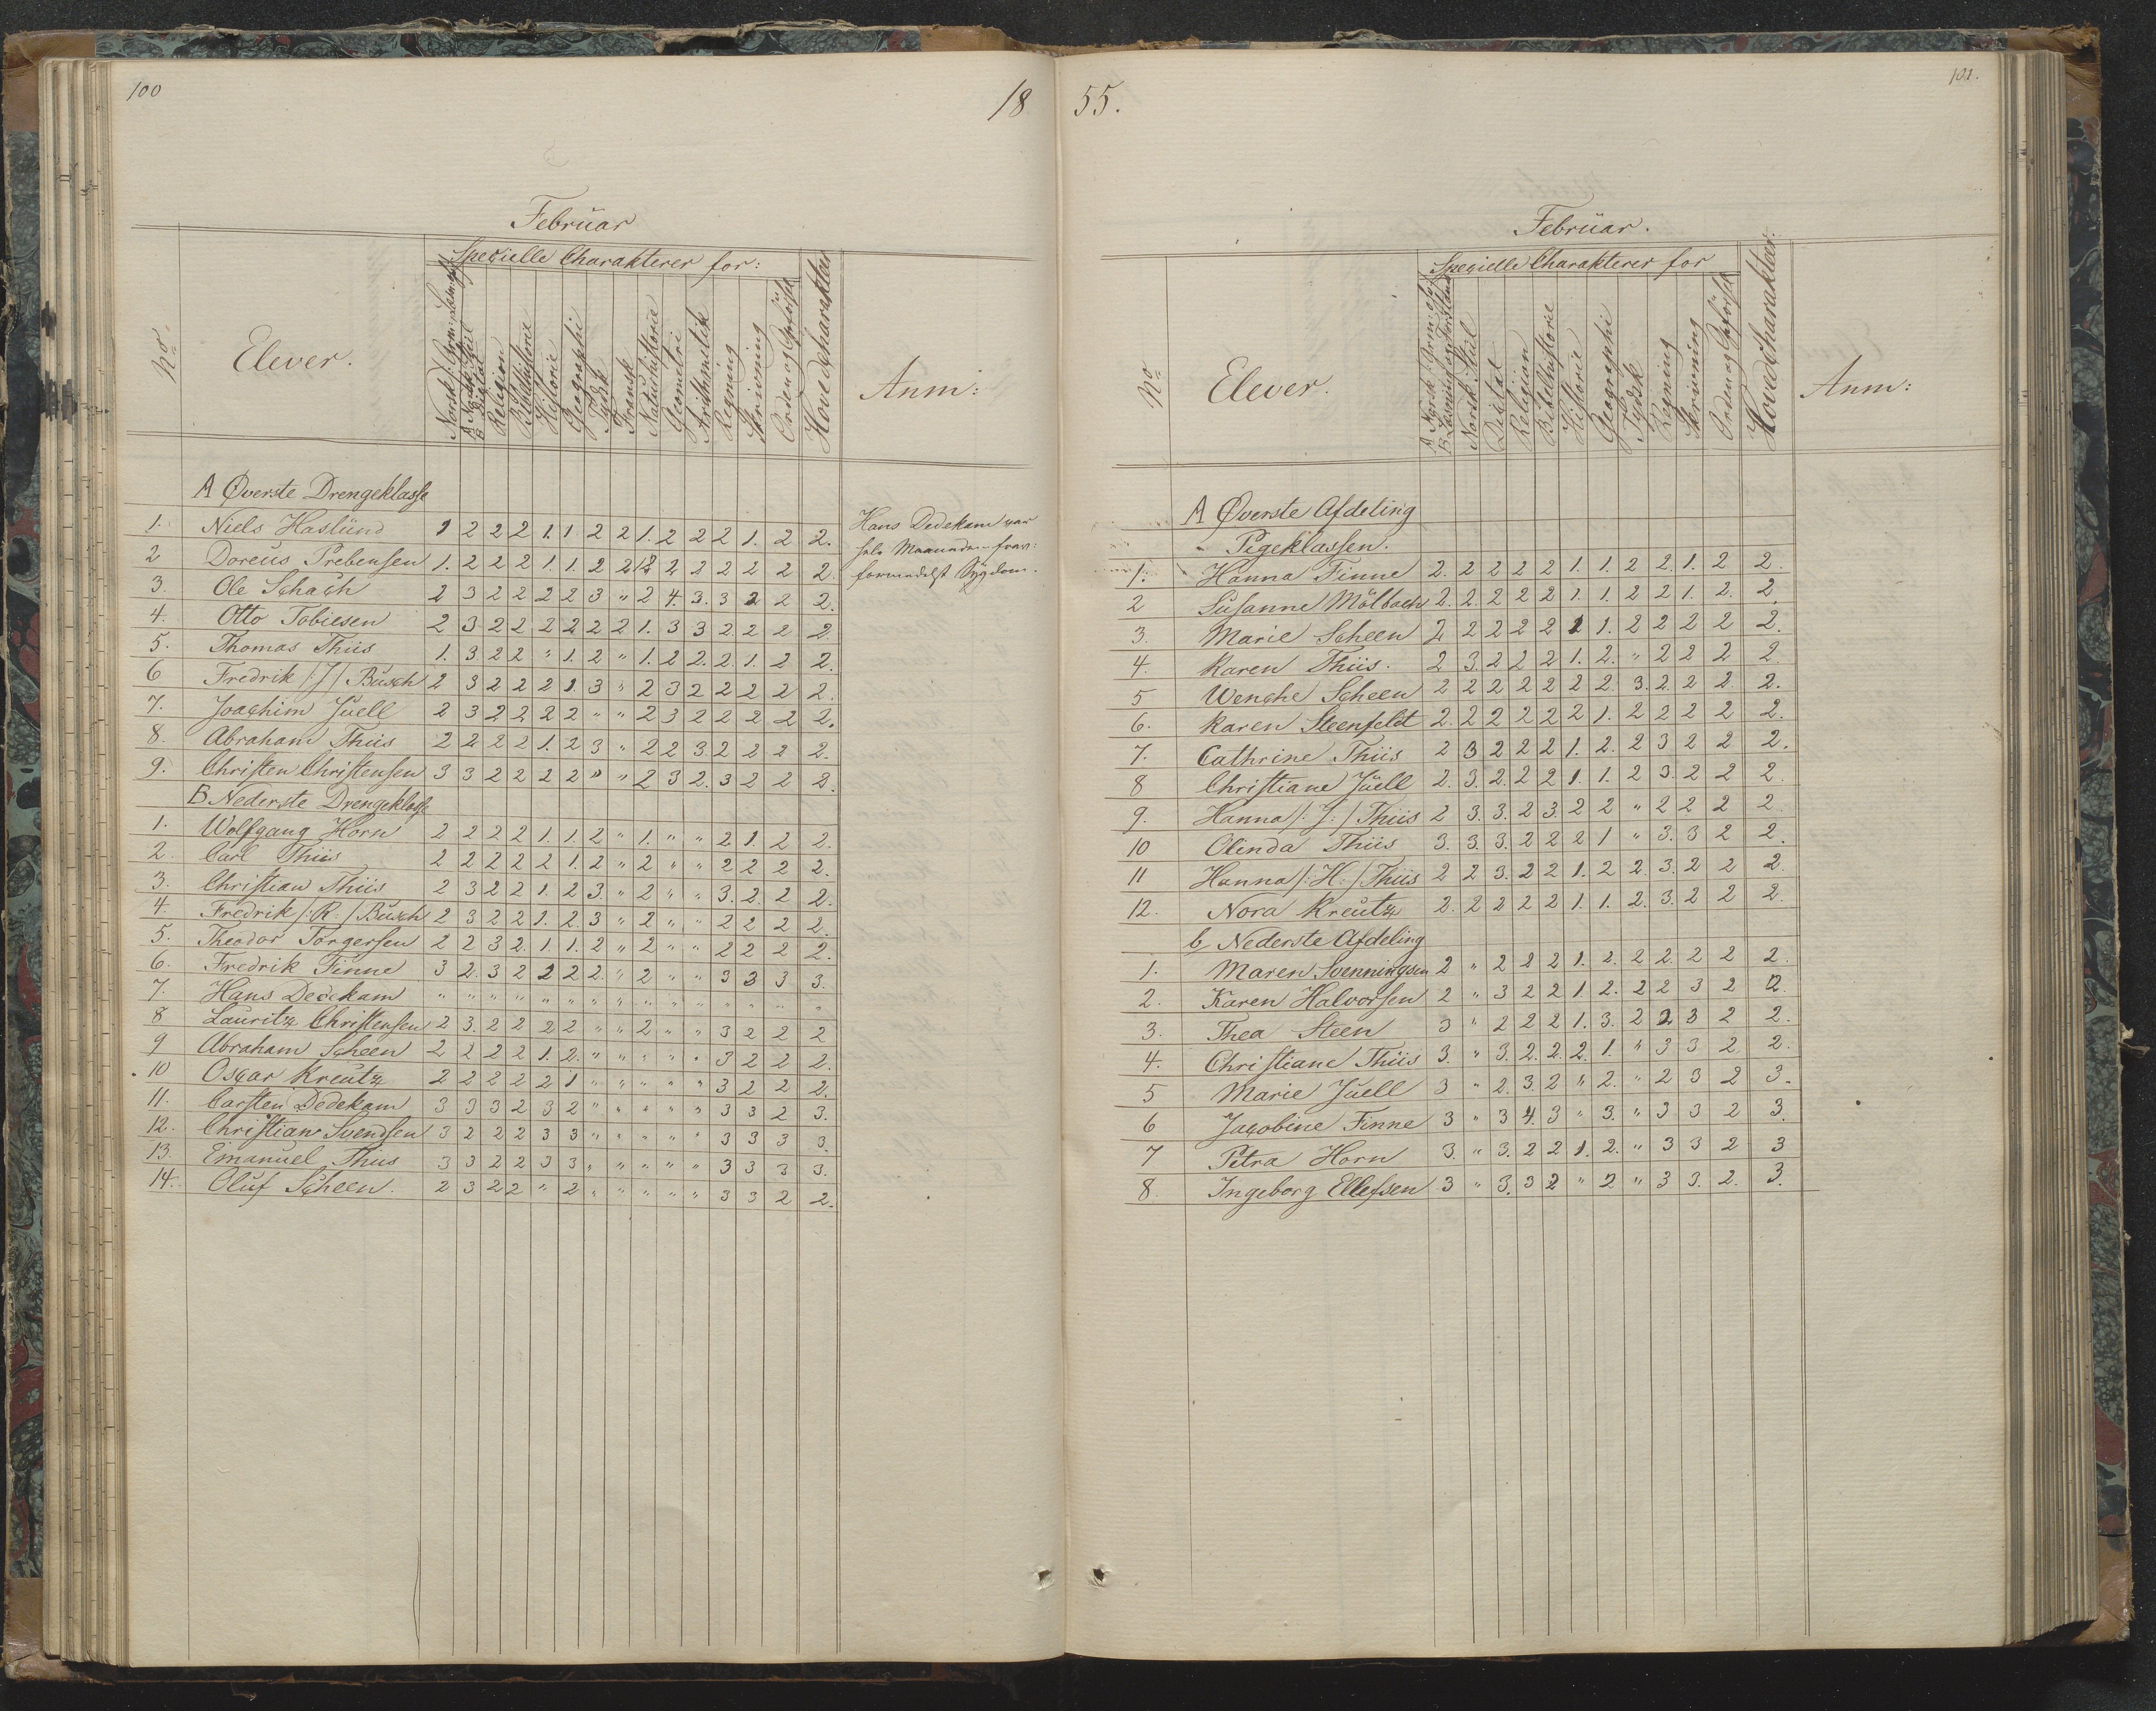 100
18
Februar
Specielle Charakterer for:
No
Elever.
Religion
Bibelhistorie
Historie
Geographi
Tydsk
Fransk
Naturhistorie
Geometri
Arithmetik
Regning
Skrivning
Orden og Opførsel
Hovedcharakter
Anm:
A Øverste Drengeklasse
1. Niels Haslund 1 2 2 2 1. 1 2 2 1. 2 2 2 1. 2 2.
2 Doreus Prebensen 1. 2 2 2 1. 1. 2 2 2 2 2 2 2 2
3. Ole Schach 2 3 2 2 2 2 3 " 2 4. 3. 3 2 2 2.
4. Otto Tobiesen 2 3 2 2 2 2 2 2 1. 3 3 2 2 2 2.
5. Thomas Thiis 1. 3. 2 2 " 1. 2 " 1. 2 2. 2. 1. 2 2.
6 Fredrik /:J/ Busch 2 3 2 2 2 1. 3 " 2 3 2 2 2 2 2.
7. Joachim Juell 2 3 2 2 2 2 " " 2 3 2 2 2 2 2.
8. Abraham Thiis 2 2 2 2 1. 2 3 " 2 2 3 2 2 2 2.
9. Christen Christensen 3 3 2 2 2 2 " " 2 3 2. 3 2 2 2.
B. Nederste Drengeklasse
1. Wolfgang Horn 2 2 2 2 1. 1. 2 " 1. " " 2 1. 2 2.
2. Carl Thiis 2 2 2 2 2 1. 2 " 2 " " 2 2 2 2.
3. Christian Thiis 2 3 2 2 1. 2 3. " 2 " " 3. 2. 2 2.
4. Fredrik /:R:/ Busch 2 3 2 2 1. 2. 3 " 2 " " 2 2 2 2.
5. Theodor Torgersen 2 2 3 2. 1. 1. 2 " 2 " " 2 2 2 2.
6. Fredrik Finne 3 2. 3 2 2 2 2. " 2 " " 3 3 3 3.
7. Hans Dedekam " " " " " " " " " " " " " " "
8 Lauritz Christensen 2 3. 2 2 2 2 " " 2 " " 3 2 2 2
9 Abraham Scheen 2 2 2 2 1. 2. " " " " " 3 2 2 2.
10 Oscar Kreutz 2 2 2 2 2 1 " " " " " 3 2 2 2.
11. Carsten Dedekam 3 3 3 2 3 2 " " " " " 3 3 2 3.
12. Christian Svendsen 3 2 2 2 3 3 " " " " " 3 3 3 3.
13. Emanuel Thiis 3 3 2 2 3 3 " " " " " 3 3 3 3.
14. Oluf Scheen. 2 3 2 2 " 2 " " " " " 3 3 2 2.
Hans Dedekam var
hele Maaneden frav:
formedelst Sygdom.
55.
101.
Februar.
Specielle Charakterer for
No
Elever.
A Norsk Grm: og
B Læsning og Forstand
Norsk Stiil
Diktat
Religion
Bibelhistorie
Historie
Geographi
Tydsk
Regning
Skrivning
Orden og Opførsel
Hovedcharakter
Anm:
A Øverste Afdeling
Pigeklassen.
1. Hanna Finne 2. 2 2 2 2 1. 1. 2 2. 1. 2 2.
2 Susanne Mölbach 2. 2. 2 2 2 1. 1. 2 2 1. 2. 2.
3. Marie Scheen 2 2 2 2 2 1 1. 2 2 2 2 2.
4. Karen Thiis. 2 3. 2 2 2 1. 2. " 2 2 2 2
5 Wenche Scheen 2 2 2 2 2 2 2. 3. 2. 2 2. 2.
6. Karen Steenfeldt 2. 2 2 2 2 2 1. 2 2 2 2 2.
7. Cathrine Thiis 2 3 2 2 2 1. 2. 2 3 2 2 2.
8 Christiane Juell 2. 3. 2. 2 2 1. 1. 2 3. 2 2 2.
9. Hanna /:J:/ Thiis 2 3. 3. 2 3. 2 2 " 2 2 2 2
10 Olinda Thiis 3. 3. 3. 2 2 2 1 " 3. 3 2 2.
11 Hanna /:H:/ Thiis 2 2 3. 2 2 1. 2 2. 3. 2 2 2
12. Nora Kreutz 2. 2 2 2 2 1. 1. 2. 3. 2 2 2.
b Nederste Afdeling
1. Maren Svenningsen 2 " 2 2 2 1. 2. 2 2. 2 2 2.
2. Karen Halvorsen 2 " 3 2 2 1. 2. 2 2 3 2 2.
3. Thea Steen 3 " 2 2 2 1. 3. 2 2 3 2 2.
4. Christiane Thiis 3. " 3. 2. 2. 2. 1. " 3 3 2. 2.
5 Marie Juell 3 " 2. 3. 2 " 2. " 2 3 2 3.
6 Jacobine Finne 3 " 3 4. 3 " 3. " 3 3 2 3.
7 Petra Horn 3. " 3. 2 2 1. 2. " 3 3 2 3
8. Ingeborg Ellefsen 3 " 3. 3 2 " 2 " 3 3. 2. 3.